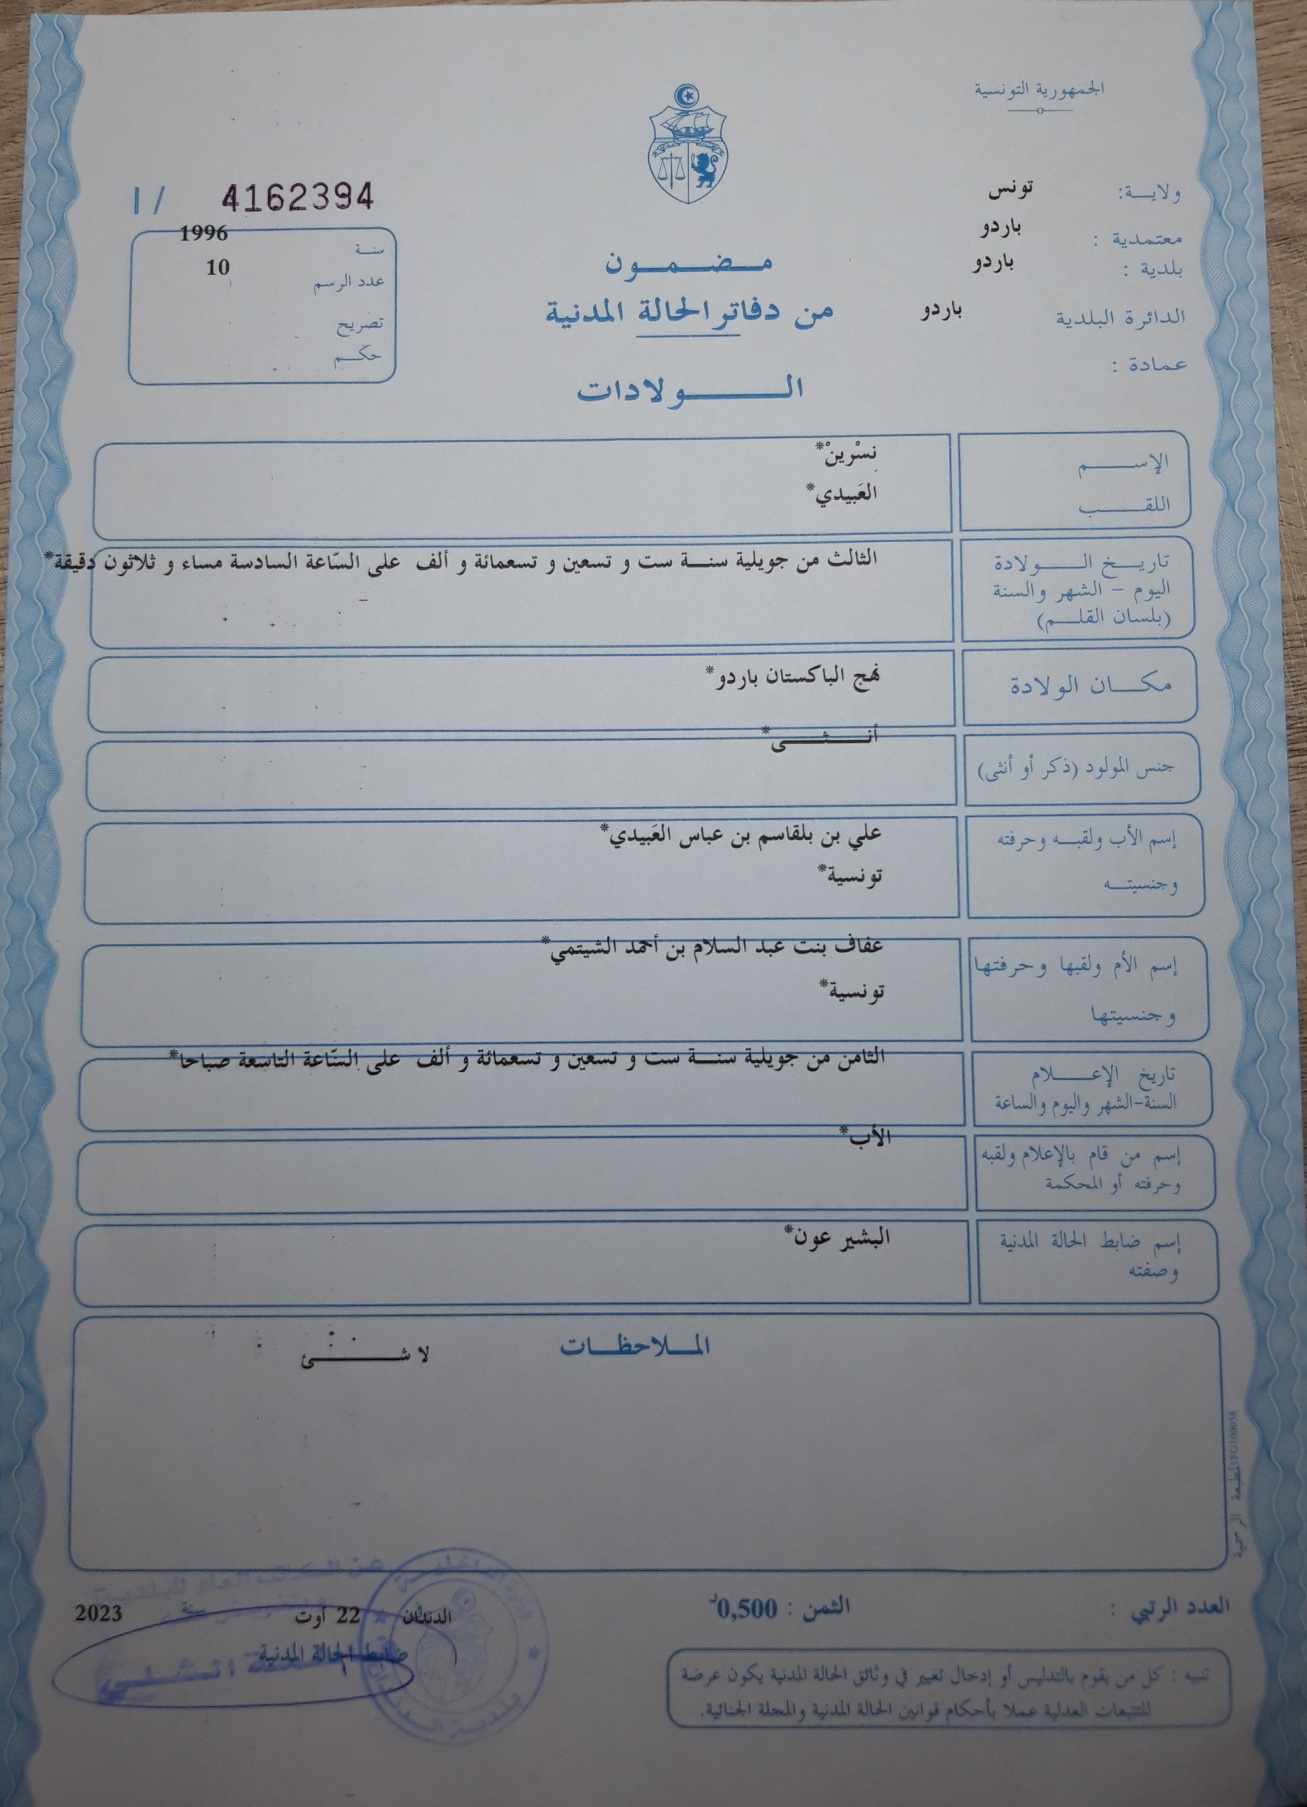 الجمهورية التونسية
ولايـــة: تونس
معتمدية : باردو
بلدية : باردو
الدائرة البلدية باردو
عمادة :
I / 4162394
سنــة 1996
عدد الرسم 10
تصريح
حكــم
مــضــمــون
من دفاتر الحالة المدنية
الــــولادات
الإســــم نسْرينْ*
اللقــــب العَبيدي*
تاريــخ الــــولادة الثالث من جويلية سنــة ست و تسعين و تسعمائة و ألف على السّاعة السادسة مساء و ثلاثون دقيقة*
اليوم - الشهر والسنة
(بلسان القلــم)
مكــان الولادة نهج الباكستان باردو*
جنس المولود (ذكر أو أنثى) أنــــثــــى*
إسم الأب ولقبــه وحرفته علي بن بلقاسم بن عباس العَبيدي*
وجنسيتــه تونسية*
إسم الأم ولقبها وحرفتها عفاف بنت عبد السلام بن أحمد الشيتمي*
وجنسيتها تونسية*
تاريخ الإعــــلام الثامن من جويلية سنــة ست و تسعين و تسعمائة و ألف على السّاعة التاسعة صباحا*
السنة-الشهر واليوم والساعة
إسم من قام بالإعلام ولقبه الأب*
وحرفته أو المحكمة
إسم ضابط الحالة المدنية البشير عون*
وصفته
المــلاحظــات
لا شــــــئ
المطبعة الرسمية
العدد الرتبي :
الثمن : 0,500د
22 أوت سنة 2023
ضابط الحالة المدنية
تنبيه : كل من يقوم بالتدليس أو إدخال تغيير في وثائق الحالة المدنية يكون عرضة
للتتبعات العدلية عملا بأحكام قوانين الحالة المدنية والمجلة الجنائية.